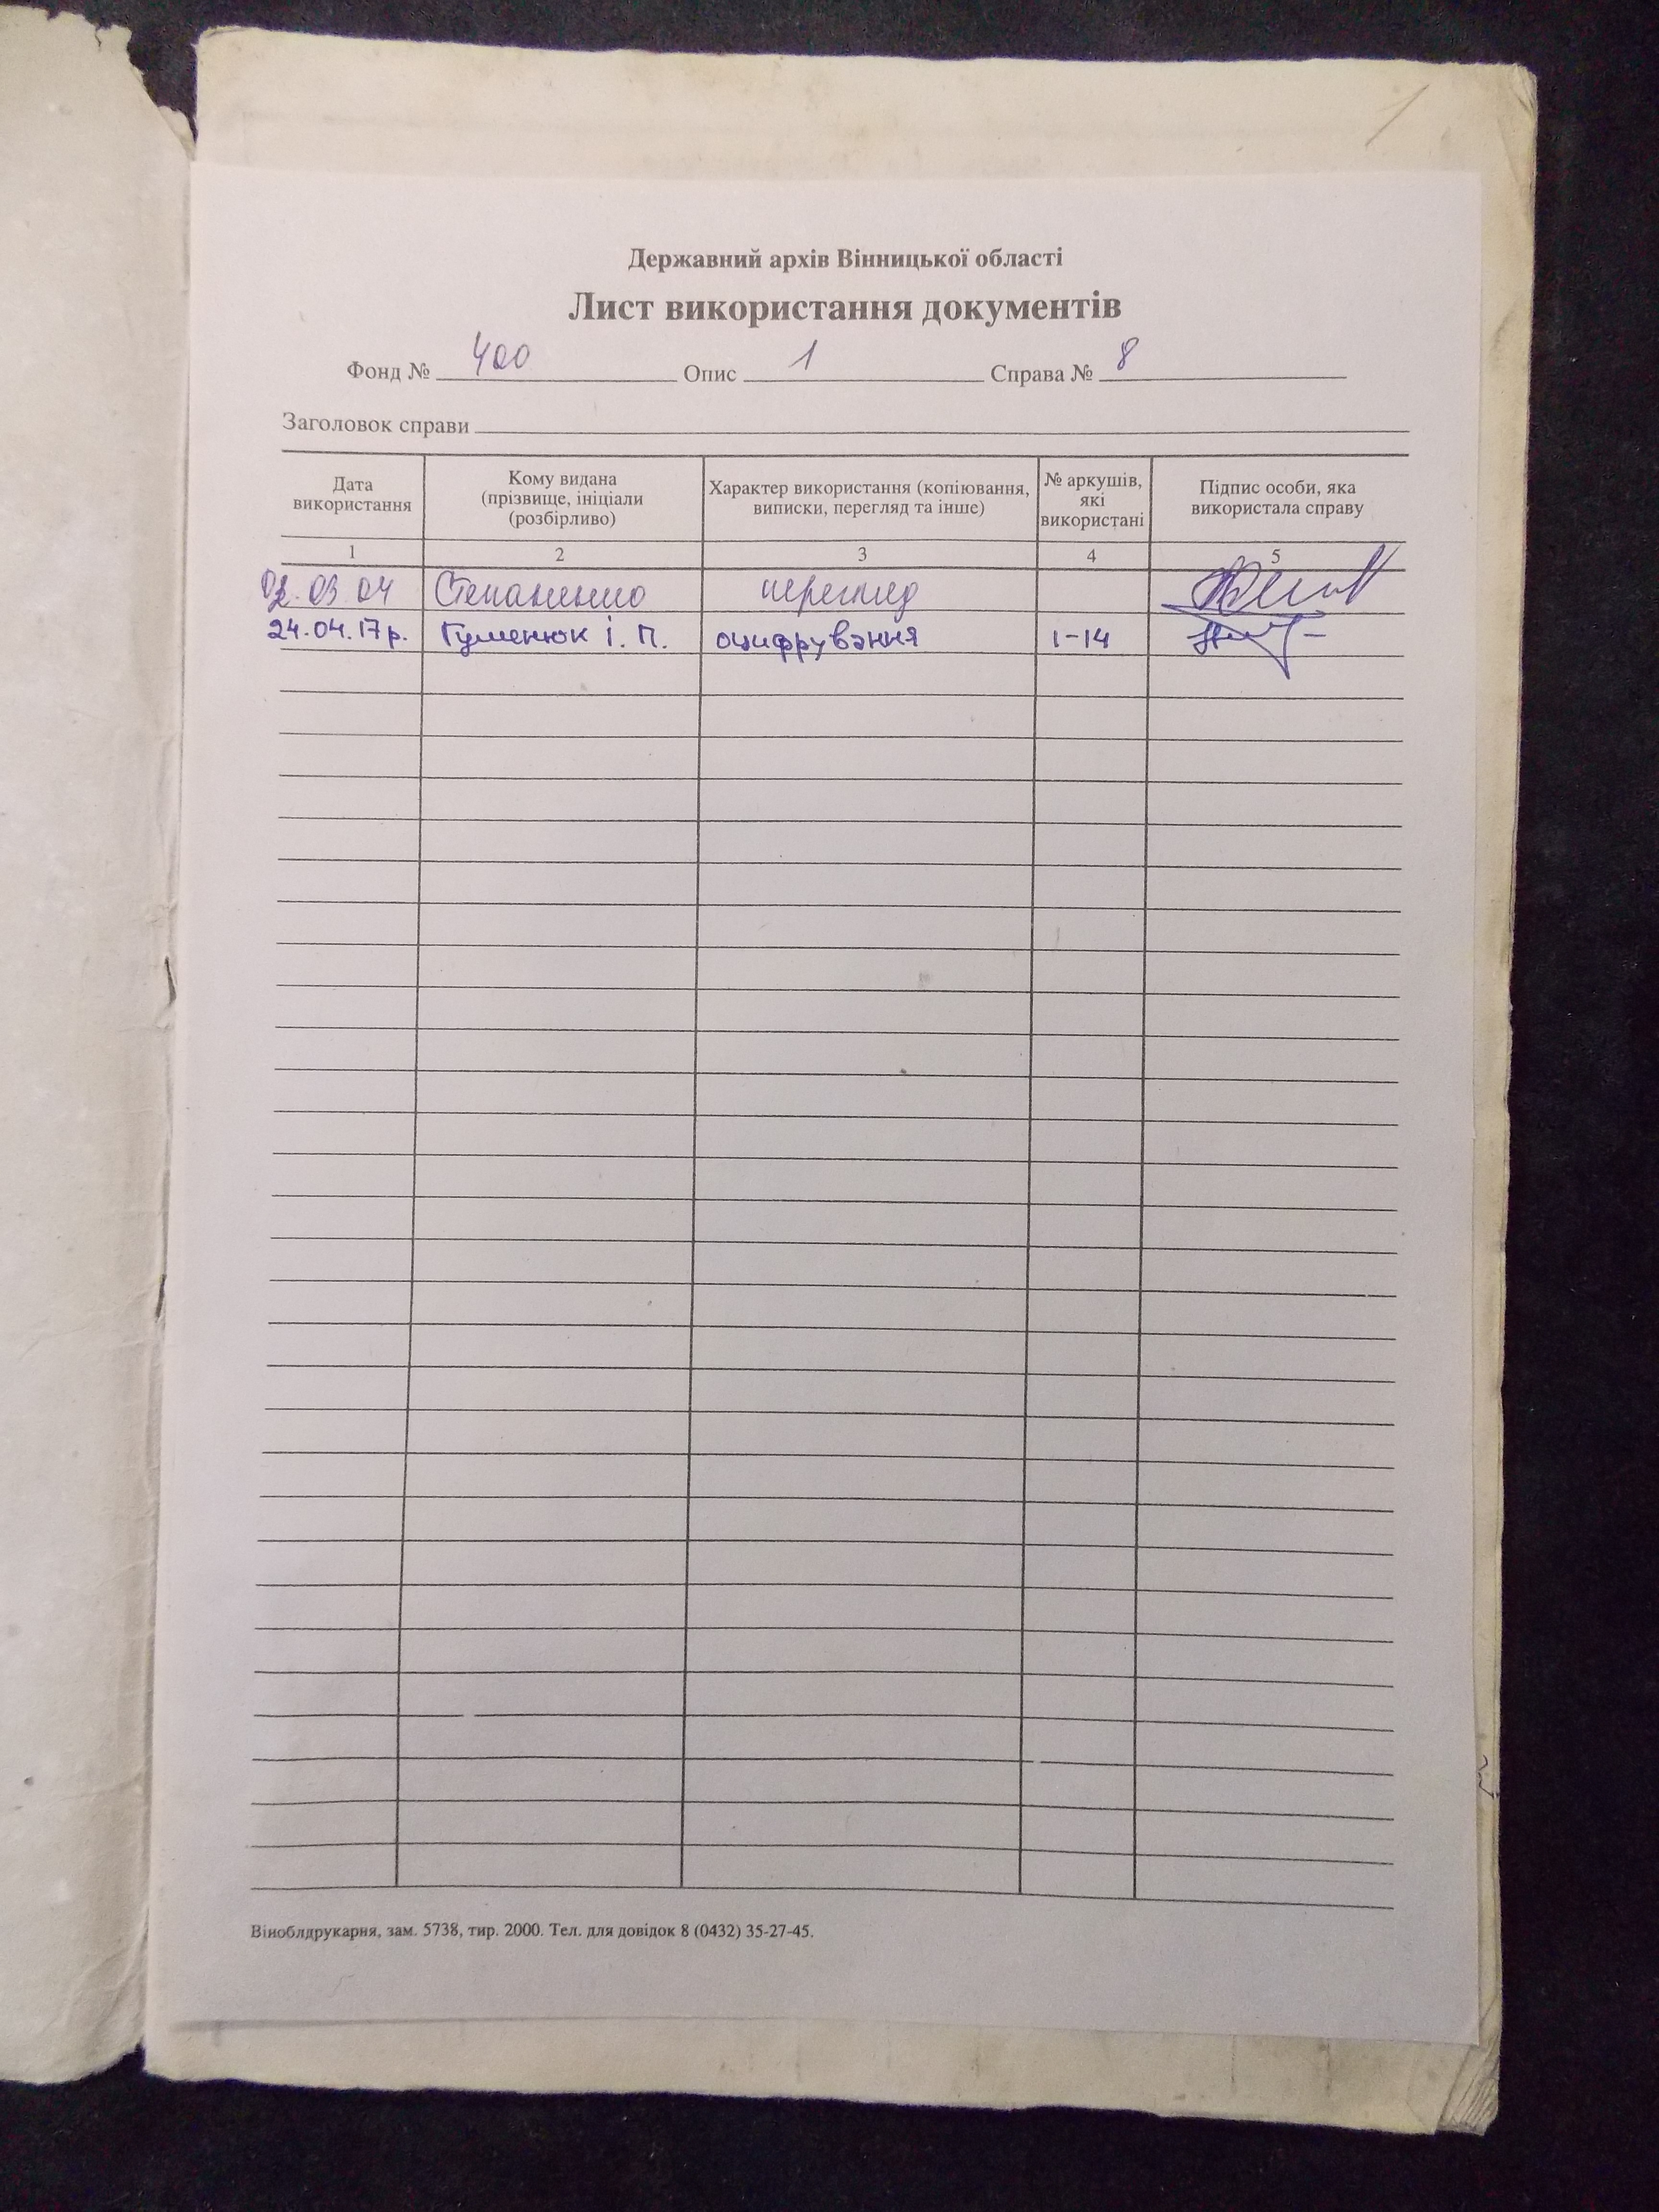 1
Державний архів Вінницької області
Лист використання документів
Фонд № 400 Опис 1 Справа № 8
Заголовок справи
Дата використання
Кому видана (прізвище, ініціали (розбірливо)
Характер використання (копіювання, виписки, перегляд та інше)
№ аркушів, які використані
Підпис особи, яка використала справу
1 2 3 4 5
02.03.04 Степаненко перегляд
24.04.17р. Гуменюк І. П. оцифрування 1-14
Віноблдрукарня, зам. 5738, тир. 2000. Тел. для довідок 8 (0432) 35-27-45.